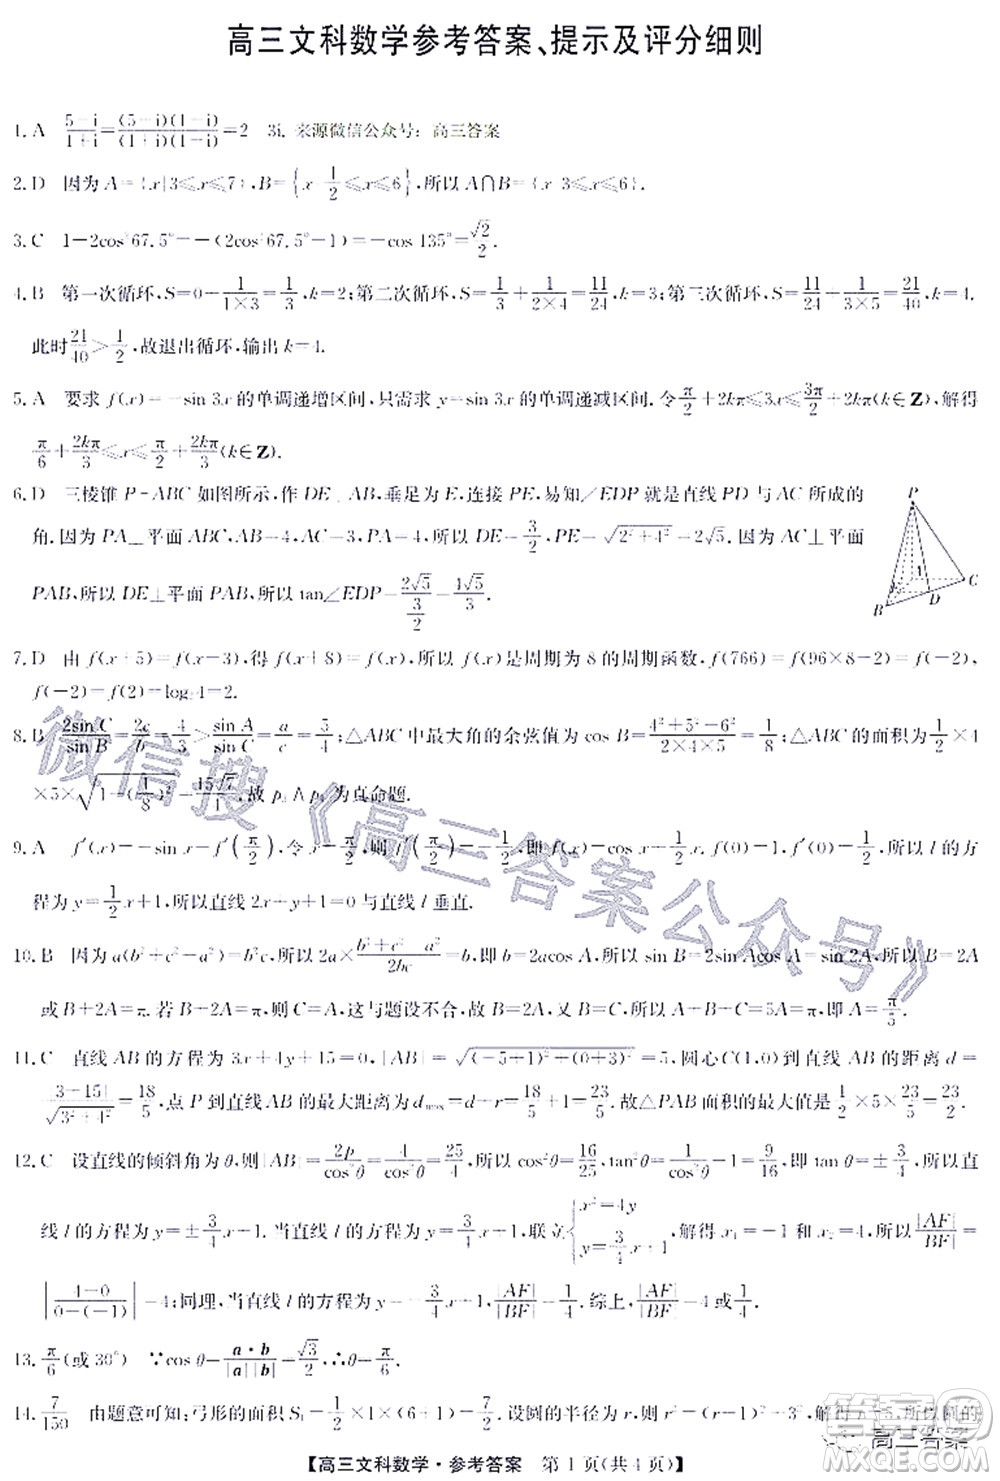 高三文科数学参考答案、提示及评分细则
1. A (5-i)/(1+i)=(5-i)(1-i)/(1+i)(1-i)=2 3i. 来源微信公众号：高三答案
2. D 因为 A={x|3≤x≤7}, B={x 1/2≤x≤6}, 所以 A∩B={x 3≤x≤6}.
3. C 1-2cos²67.5°=-(2cos²67.5°-1)=-cos 135°=√2/2.
4. B 第一次循环, S=0+1/(1×3)=1/3, k=2; 第二次循环, S=1/3+1/(2×4)=11/24, k=3; 第三次循环, S=11/24+1/(3×5)=21/40, k=4.
此时21/40>1/2, 故退出循环, 输出 k=4.
5. A 要求 f(x)=-sin 3x 的单调递增区间, 只需求 y=sin 3x 的单调递减区间. 令π/2+2kπ≤3x≤3π/2+2kπ(k∈Z), 解得
π/6+2kπ/3≤x≤π/2+2kπ/3(k∈Z).
6. D 三棱锥 P-ABC 如图所示, 作 DE⊥AB, 垂足为 E, 连接 PE, 易知∠EDP 就是直线 PD 与 AC 所成的
角. 因为 PA⊥平面 ABC, AB=4, AC=3, PA=4, 所以 DE=3/2, PE=√(2²+4²)=2√5. 因为 AC⊥平面
PAB, 所以 DE⊥平面 PAB, 所以 tan∠EDP=2√5/(3/2)=4√5/3.
P
A
C
B
D
7. D 由 f(x+5)=f(x-3), 得 f(x+8)=f(x), 所以 f(x)是周期为 8 的周期函数, f(766)=f(96×8-2)=
f(-2)=f(2)=log₂4=2.
8. B 2sin C/sin B=2c/b=4/3>sin A/sin C=a/c=5/4; △ABC 中最大角的余弦值为 cos B=(4²+5²-6²)/(2×4×5)=1/8; △ABC 的面积为1/2×4
×5×√(1-(1/8)²)=15√7/4, 故 p₂∧p₃ 为真命题.
9. A f′(x)=-sin x-f′(π/2), 令 x=π/2, 则 f′(π/2)=-1/2, 即 f(x)=cos x+1/2x. f(0)=1, f′(0)=1/2, 所以 l 的方
程为 y=1/2x+1, 所以直线 2x+y+1=0 与直线 l 垂直.
10. B 因为 a(b²+c²-a²)=b²c, 所以 2a×(b²+c²-a²)/2bc=b, 即 b=2acos A, 所以 sin B=2sin Acos A=sin 2A, 所以 B=2A
或 B+2A=π. 若 B+2A=π, 则 C=A, 这与题设不合, 故 B=2A, 又 C=2A, 所以 A+B+C=5A=π, 即 A=π/5.
11. C 直线 AB 的方程为 3x+4y+15=0, |AB|=√((-5+1)²+(0+3)²)=5, 圆心C(1,0)到直线 AB 的距离 d=
|3+15|/√(3²+4²)=18/5, 点 P 到直线 AB 的最大距离为 d_max=d+r=18/5+1=23/5. 故△PAB 面积的最大值是1/2×5×23/5=23/2.
12. C 设直线的倾斜角为 θ, 则|AB|=2p/cos²θ=4/cos²θ=25/4, 所以 cos²θ=16/25, tan²θ=1/cos²θ-1=9/16, 即 tan θ=±3/4, 所以直
线 l 的方程为 y=±3/4x+1. 当直线 l 的方程为 y=3/4x+1, 联立{x²=4y, y=3/4x+1, 解得 x₁=-1 和 x₂=4, 所以|AF|/|BF|=
|(4-0)/(0-(-1))|=4; 同理, 当直线 l 的方程为 y=-3/4x+1, |AF|/|BF|=1/4. 综上, |AF|/|BF|=4 或1/4.
13. π/6(或 30°) ∵cos θ=a·b/|a||b|=√3/2, ∴θ=π/6.
14. 7/150 由题意可知: 弓形的面积 S₁=1/2×1×(6+1)=7/2. 设圆的半径为 r, 则
高三答案
【高三文科数学·参考答案 第 1 页(共 4 页)】
微信搜《高三答案公众号》